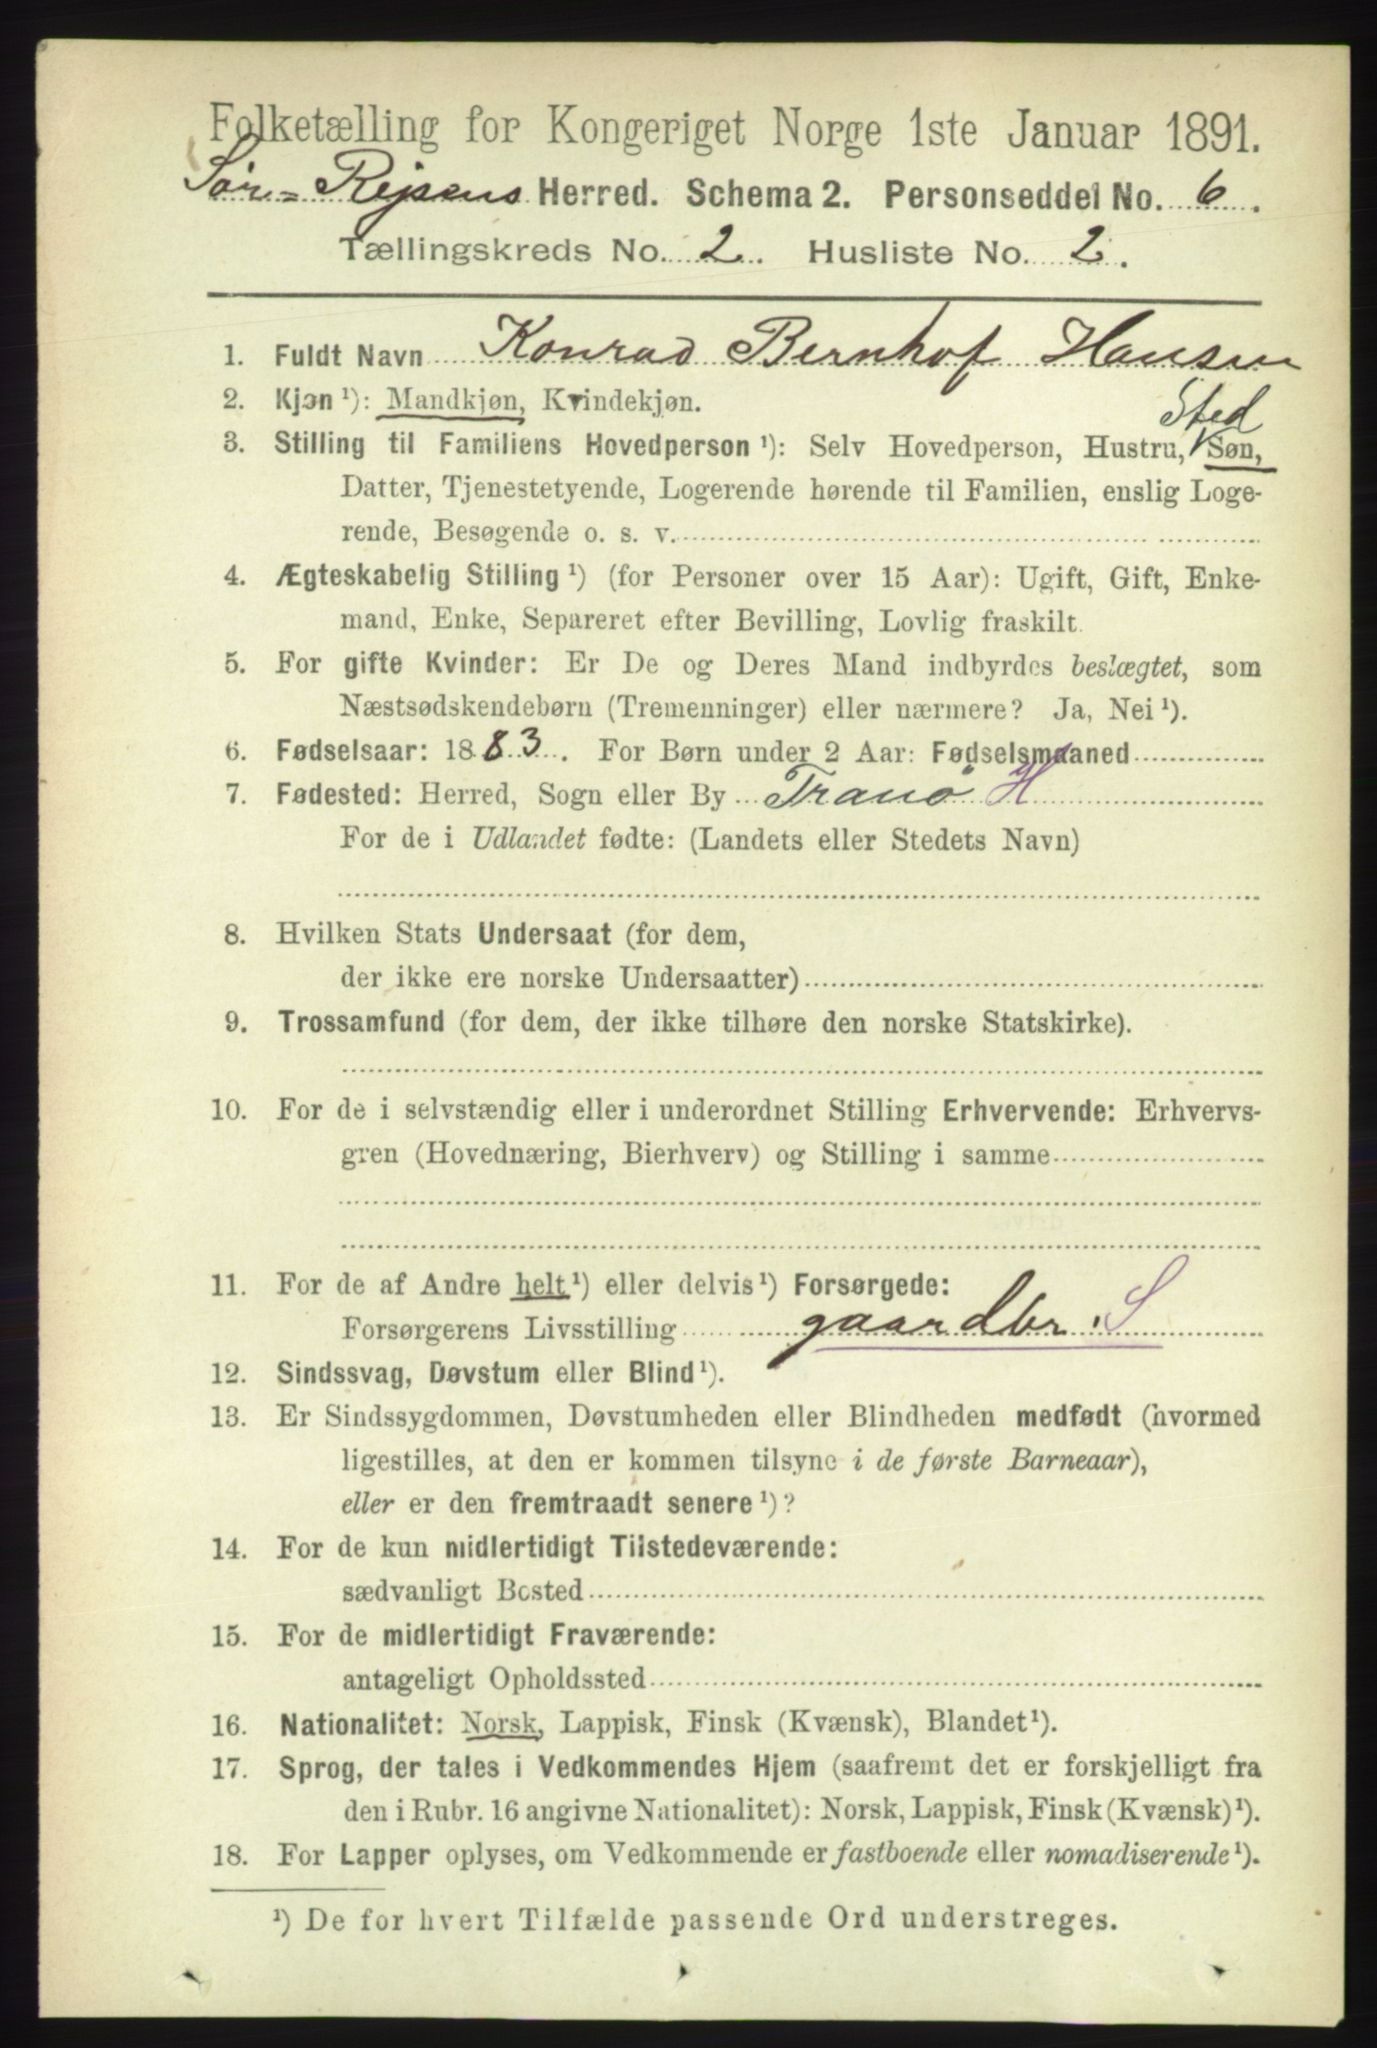 Folketælling for Kongeriget Norge 1ste Januar 1891.
Sør-Rejsens Herred. Schema 2. Personseddel No. 6.
Tællingskreds No. 2. Husliste No. 2.
1. Fuldt Navn Konrad Bernhof Hansen
2. Kjøn ¹): Mandkjøn, Kvindekjøn.
Sted
3. Stilling til Familiens Hovedperson ¹): Selv Hovedperson, Hustru, Søn,
Datter, Tjenestetyende, Logerende hørende til Familien, enslig Loge-
rende, Besøgende o. s. v.
4. Ægteskabelig Stilling ¹) (for Personer over 15 Aar): Ugift, Gift, Enke-
mand, Enke, Separeret efter Bevilling, Lovlig fraskilt.
5. For gifte Kvinder: Er De og Deres Mand indbyrdes beslægtet, som
Næstsødskendebørn (Tremenninger) eller nærmere? Ja, Nei ¹).
6. Fødselsaar: 1883. For Børn under 2 Aar: Fødselsmaaned
7. Fødested: Herred, Sogn eller By Tranø H
For de i Udlandet fødte: (Landets eller Stedets Navn)
8. Hvilken Stats Undersaat (for dem,
der ikke ere norske Undersaatter)
9. Trossamfund (for dem, der ikke tilhøre den norske Statskirke).
10. For de i selvstændig eller i underordnet Stilling Erhvervende: Erhvervs-
gren (Hovednæring, Bierhverv) og Stilling i samme
11. For de af Andre helt ¹) eller delvis ¹) Forsørgede:
Forsørgerens Livsstilling gaardbr. S
12. Sindssvag, Døvstum eller Blind ¹).
13. Er Sindssygdommen, Døvstumheden eller Blindheden medfødt (hvormed
ligestilles, at den er kommen tilsyne i de første Barneaar),
eller er den fremtraadt senere ¹)?
14. For de kun midlertidigt Tilstedeværende:
sædvanligt Bosted
15. For de midlertidigt Fraværende:
antageligt Opholdssted
16. Nationalitet: Norsk, Lappisk, Finsk (Kvænsk), Blandet ¹).
17. Sprog, der tales i Vedkommendes Hjem (saafremt det er forskjelligt fra
den i Rubr. 16 angivne Nationalitet): Norsk, Lappisk, Finsk (Kvænsk) ¹).
18. For Lapper oplyses, om Vedkommende er fastboende eller nomadiserende ¹).
¹) De for hvert Tilfælde passende Ord understreges.